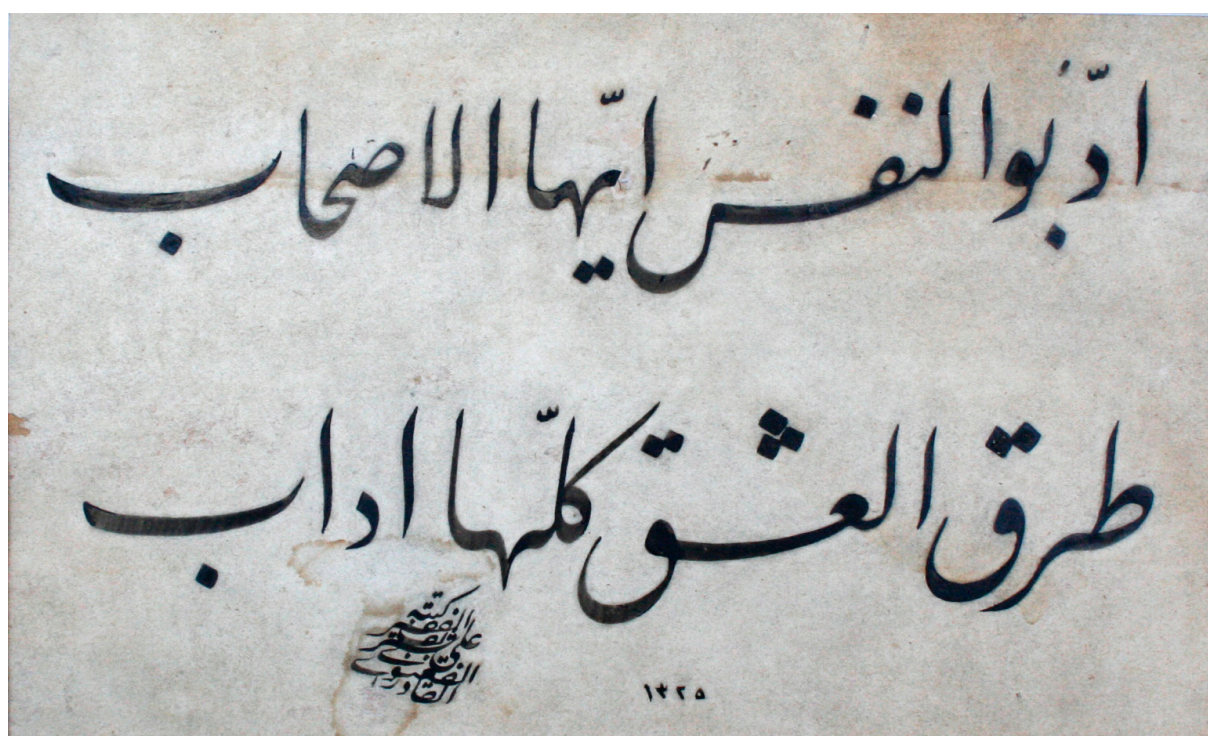 ادّبُوا النفس ايّها الاصحاب
طرق العشق كلّها اداب
كتبه الفقير
على
١٣٢٥